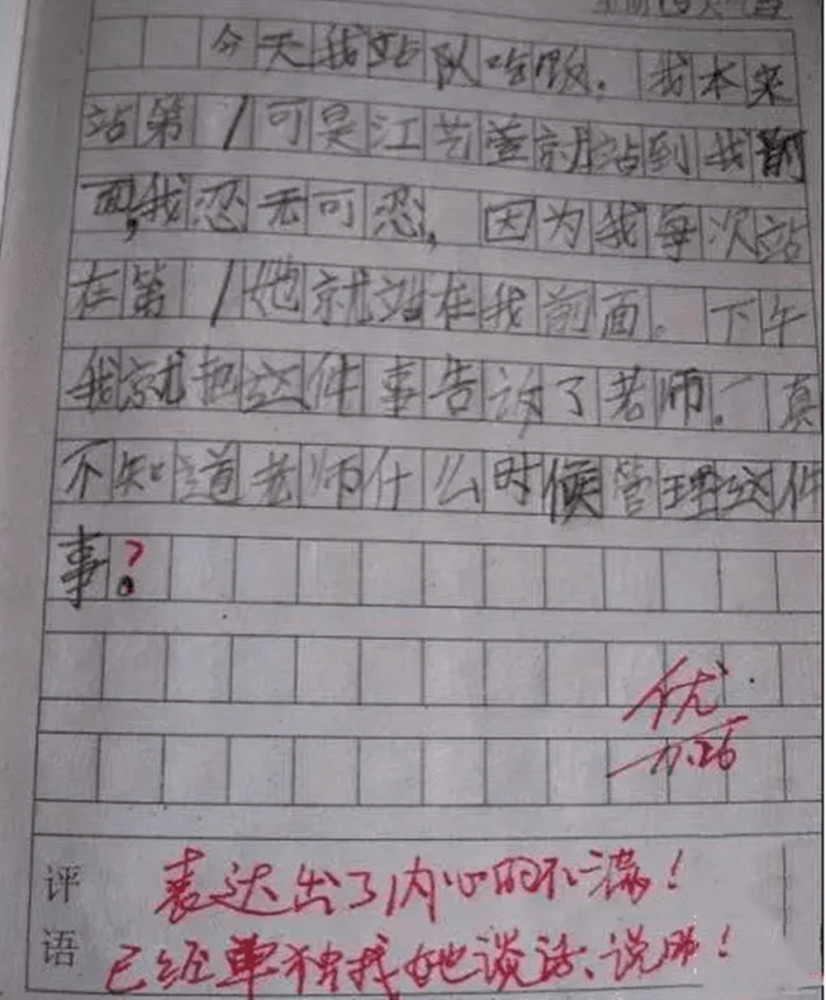 今天我站队吃饭。我本来
站第1可吴江艺萱就站到我前
面,我忍无可忍,因为我每次站
在第1她就站在我前面。下午
我就把这件事告诉了老师。真
不知道老师什么时候管理这件
事?
优
11.26
评语
表达出了内心的不满!
已经单独找她谈话、说服!